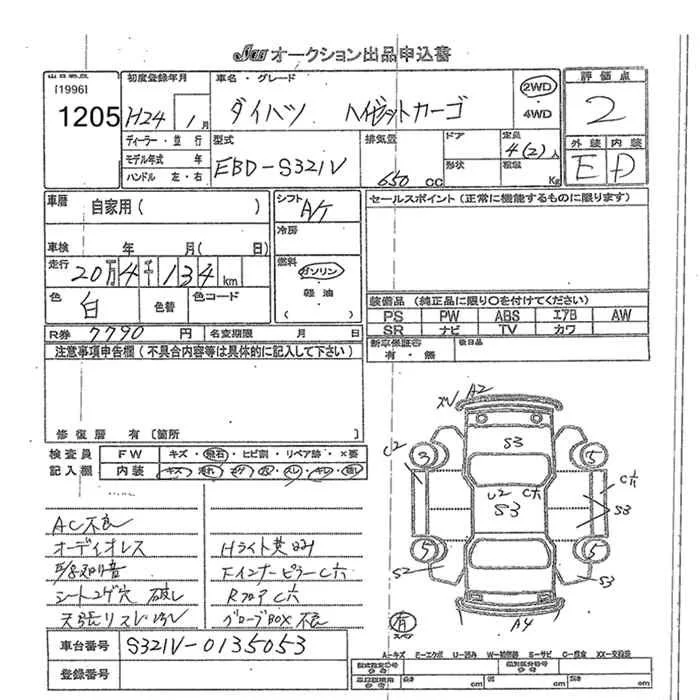 オークション出品申込書
出品番号
[1996]
1205
初度登録年月
H24 1月
車名・グレード
ダイハツ ハイゼットカーゴ
2WD
・
4WD
評価点
2
外装 内装
E D
ディーラー・並行
モデル年式 年
ハンドル 左・右
型式
EBD-S321V
排気量
650 cc
ドア
形状
定員
4(2)人
積載
Kg
車暦
自家用( )
シフト
A/T
冷房
セールスポイント(正常に機能するものに限ります)
車検 年 月( 日)
走行
20万4千134km
燃料
ガソリン
・
軽油
( )
色
白
色替
色コード
装備品(純正品に限り○を付けてください)
PS PW ABS エアB AW
SR ナビ TV カワ
R券 7790 円
名変期限 月 日
新車保証書
有・無
後日品
注意事項申告欄(不具合内容等は具体的に記入して下さい)
修復暦 有 〔箇所 〕
検査員
記入欄
FW キズ・飛石・ヒビ割・リペア跡・×要
内装
AC不良
オーディオレス
シートコゲ穴 破レ
Hライト黄
FインナーピラーC穴
RフロアC穴
グローブBOX不良
XV A2
S3
C2
3
5
U2
C穴
S3
C穴
S3
5
5
S2
S3
A4
有
スペア
A-キズ E-エクボ U-凹み W-補修跡 S-サビ C-腐食 XX-交換済
車台番号 S321V-0135053
登録番号
型式指定番号
参考
類別区分番号
参考
cm
cm
cm